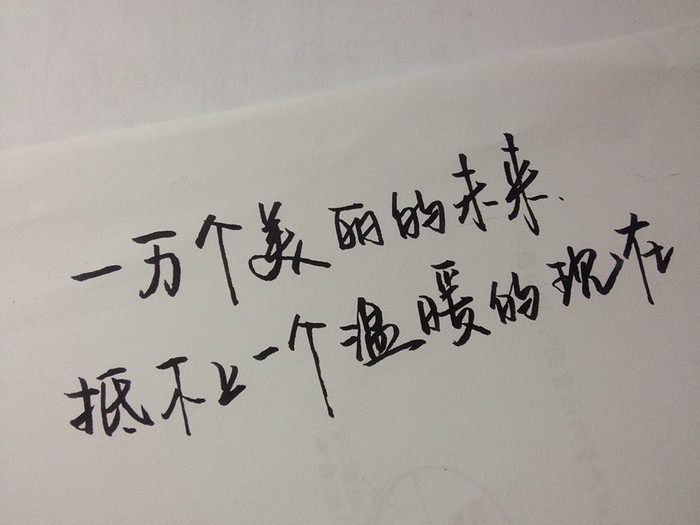 一万个美丽的未来.
抵不上一个温暖的现在